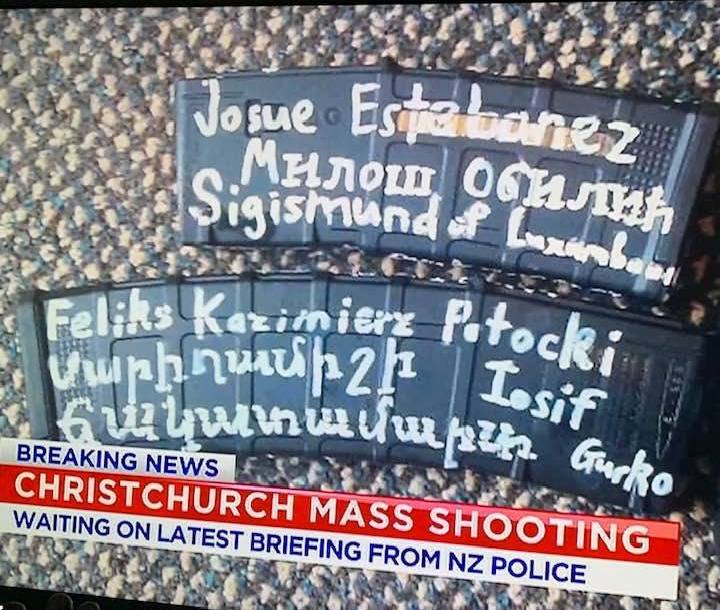 Josue Estebanez
Милош Обилић
Sigismund of
Feliks Kazimierz Potocki
Սարիղամիշի Iosif
Gurko
BREAKING NEWS
CHRISTCHURCH MASS SHOOTING
WAITING ON LATEST BRIEFING FROM NZ POLICE